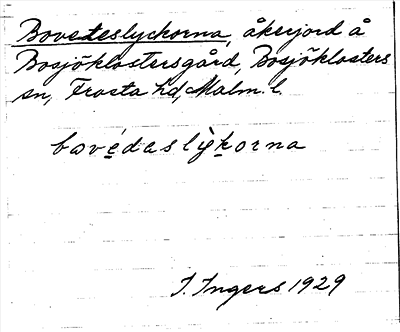 Bovedeslyckorna, åkerjord å
Bosjöklostersgård, Bosjöklosters
sn, Frosta hd, Malm. l.
bovédaslỳkorna
I. Ingers 1929